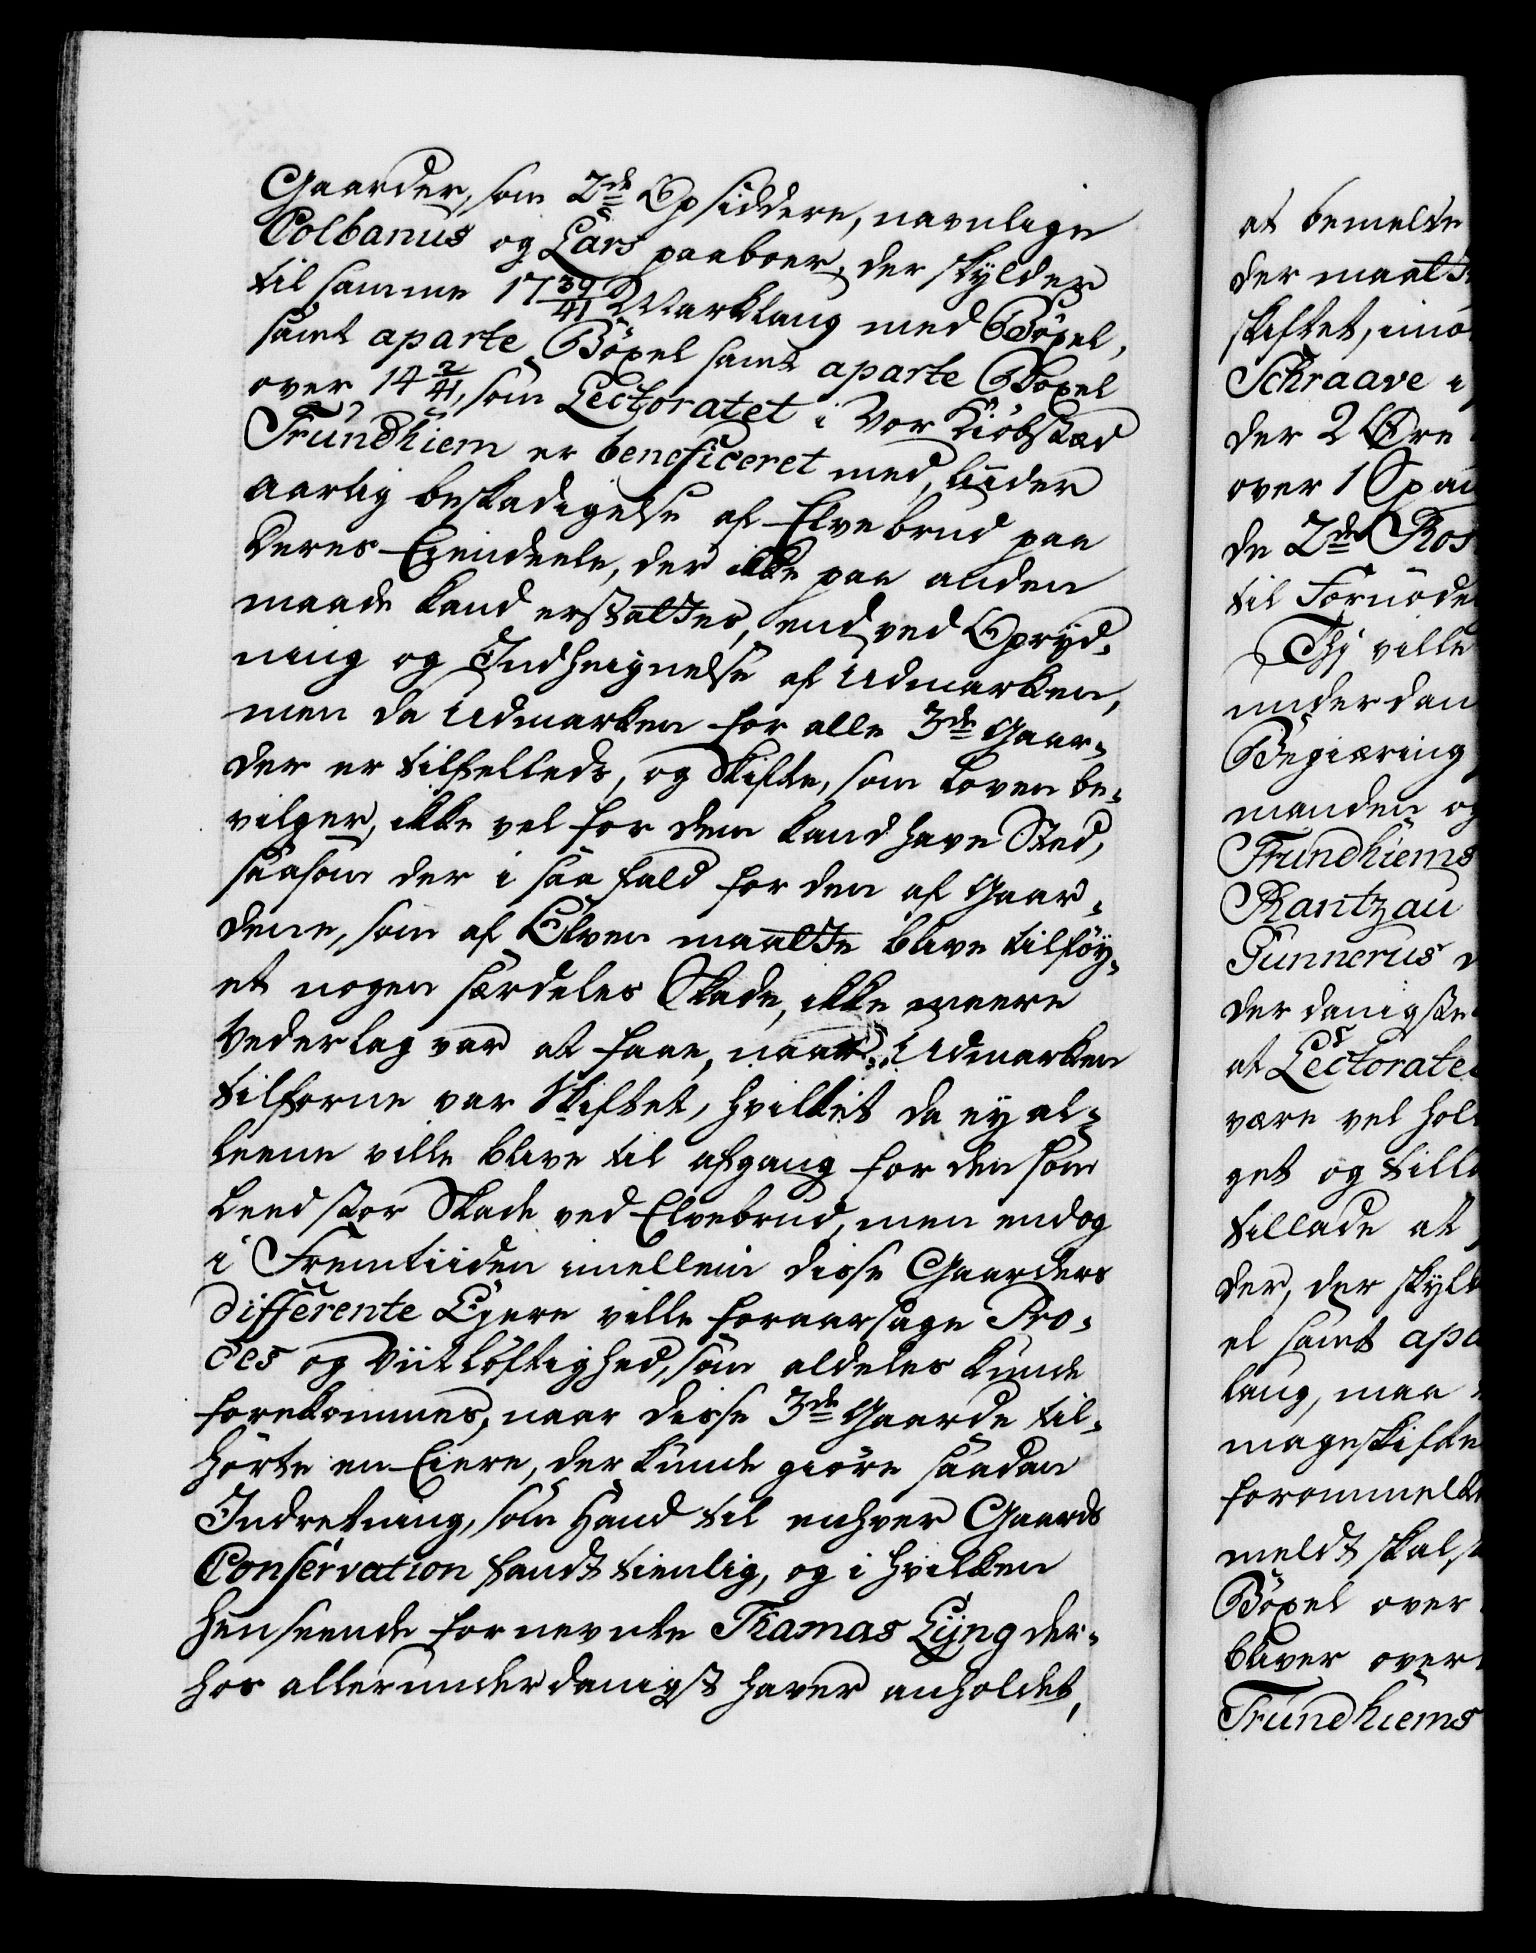 Gaarder, som 2de Opsiddere, navnlige
Colbanus og Lars paaboer, der skylder
til samme 17 39/41 Marklaug med Böxel,
samt aparte Böxel samt aparte Böxel
over 14 2/41, som Lectoratet i Vor Kiöbstæd
Trundhiem er beneficeret med, liider
aarlig beskadigelse af Elvebrud paa
deres Eiendeele, der ikke paa anden
maade kand erstattes, end ved Opryd-
ning og Indheignelse af Udmarken,
men da Udmarken for alle 3de Gaar-
der er tilfelleds, og Skifte, som Loven be-
vilger, ikke vel for dem kand have Sted,
saasom der i saa fald for den af Gaar-
dene, som af Elven maatte blive tilföy-
et nogen særdeles Skade, ikke meere
Vederlag var at faae, naar Udmarken
tilforne var Skiftet, hvilket da ey al-
leene ville blive til afgang for den som
leed stor Skade ved Elvebrud, men endog
i Fremtiiden imellem disse Gaarders
differente Ejere ville foraarsage Pro-
ces og Viitlöftighed, som aldeles kunde
forekommes, naar disse 3de Gaarde til-
hörte en Eiere, der kunde giöre saadan
Indretning, som hand til enhver Gaards
Conservation fandt tienlig, og i hvilken
henseende fornevnte Thamas Lyng der-
hos allerunderdanigst haver anholdet,
at bemelte
der maatte
skiftet, imo
Schraave i
der 2 Öre
over 1 Span
de 2de Ros
til Fornöde
Thj ville
underdan
Begiæring
manden og
Trundhiems
Rantzau
Gunnerus
der danigste
at Lectorate
være vel hol
get og tilla
tillade at
der, der skyld
el samt apa
laug, maa
mageskifte
forommeldte
meldt skal,
Böxel over
bliver over
Trundhiems